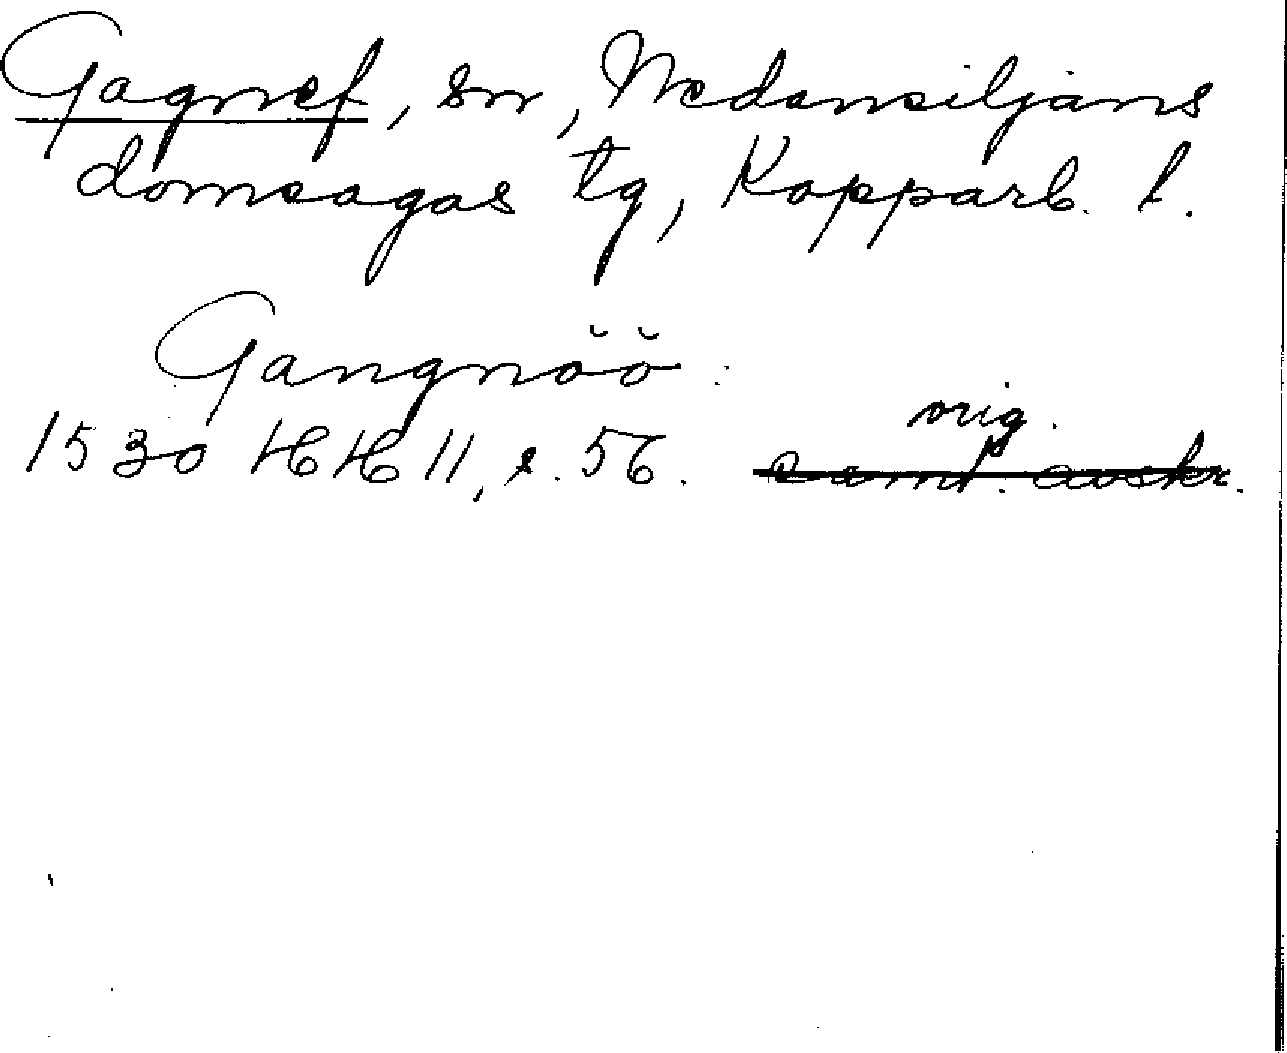 Gagnef, sn, Nedansiljans
domsagas tg, Kopparb. l.
Gangnöö
orig.
1530 HH 11, s. 56. samt. avskr.